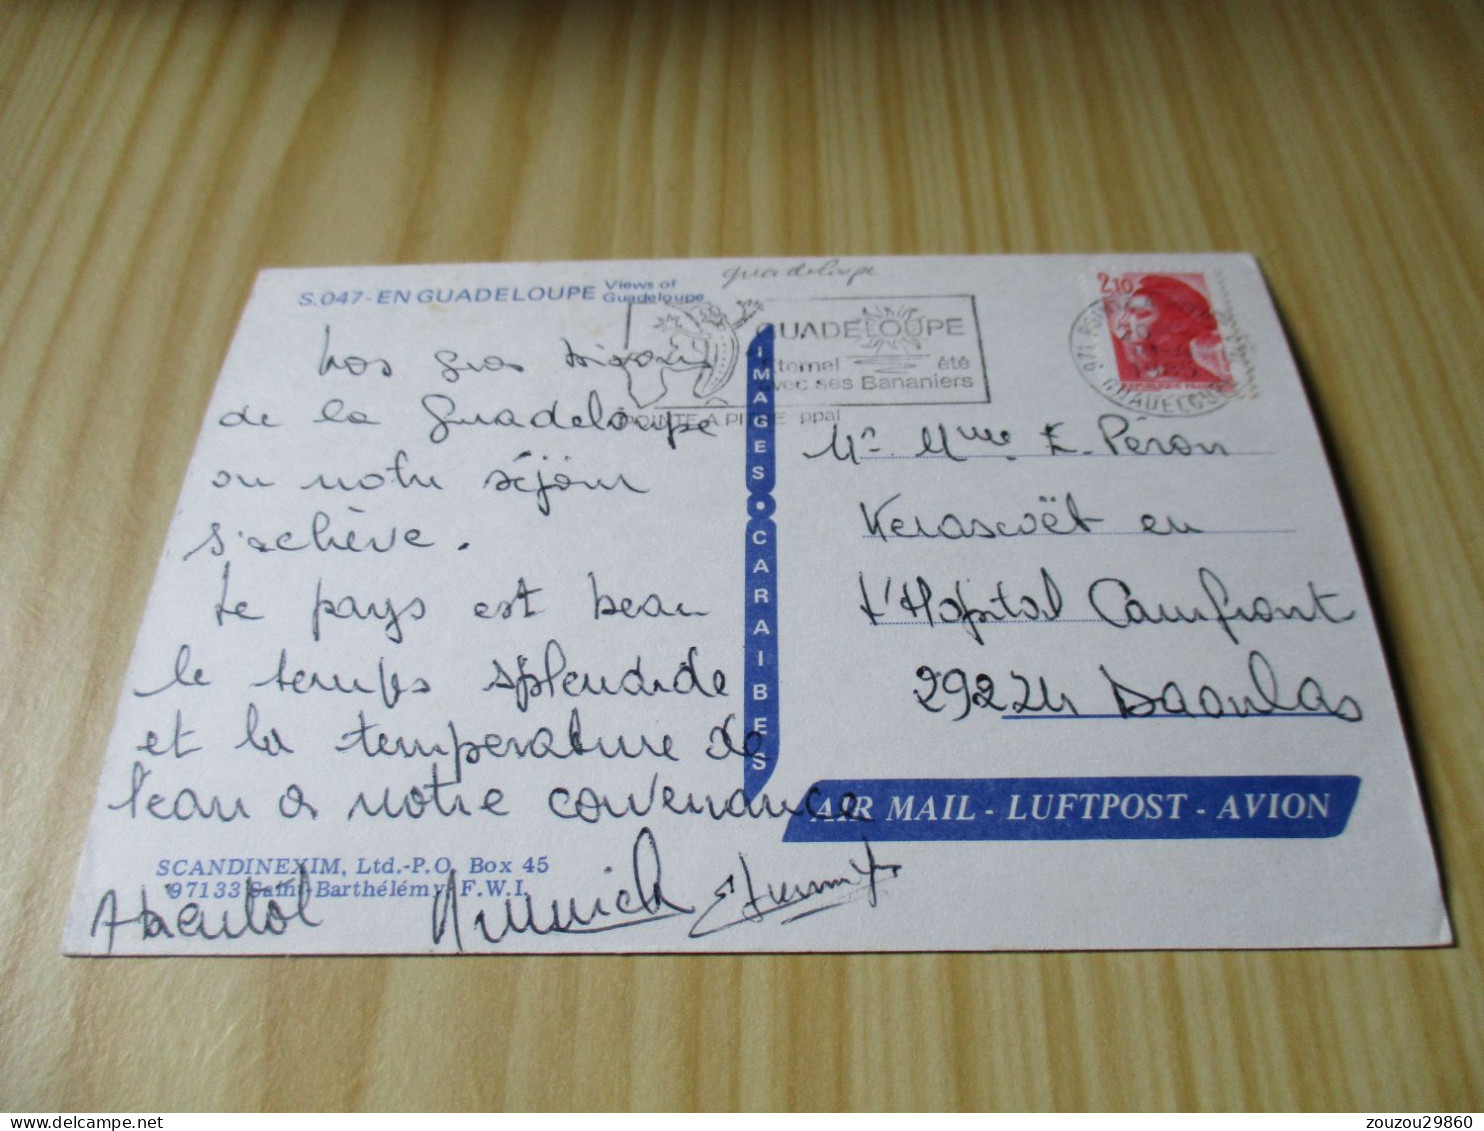 guadeloupe
S.047-EN GUADELOUPE Views of Guadeloupe
Nos gros bisous
de la Guadeloupe
ou notre séjour
s'achève.
Le pays est beau
le temps splendide
et la température de
l'eau à notre convenance
A bientôt
SCANDINEXIM, Ltd.-P.O. Box 45
97133 Saint-Barthélémy, F.W.I.
IMAGES • CARAIBES
GUADELOUPE
éternel été
avec ses Bananiers
POINTE A PITRE ppal
2,10
971
GUADELOUPE
Mr. Mme. E. Péron
Kerascoët en
L'Hopital Camfront
29224 Daoulas
AIR MAIL - LUFTPOST - AVION
zouzou29860